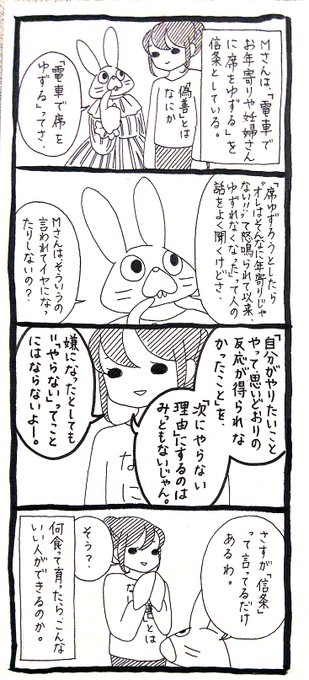 Mさんは、「電車で
お年寄りや妊婦さん
に席をゆずる」を
信条としている。
偽善とは
なにか
「電車で席を
ゆずる」ってさ、
「席ゆずろうとしたら
"オレはそんなに年寄りじゃ
ない!!"って怒鳴られて以来
ゆずれなくなった」って人の
話をよく聞くけどさ、
Mさんはそういうの
言われてイヤになっ
たりしないの？
「自分がやりたいこと
やって思いどおりの
反応が得られな
かったこと」を、
「次にやらない
理由」にするのは
みっともないじゃん。
嫌になったとしても
"やらない"ってこと
にはならないよー。
なに
さすが「信条」
って言ってるだけ
あるわ。
善とは
な
そう？
何食って育ったらこんな
いい人ができるのか。